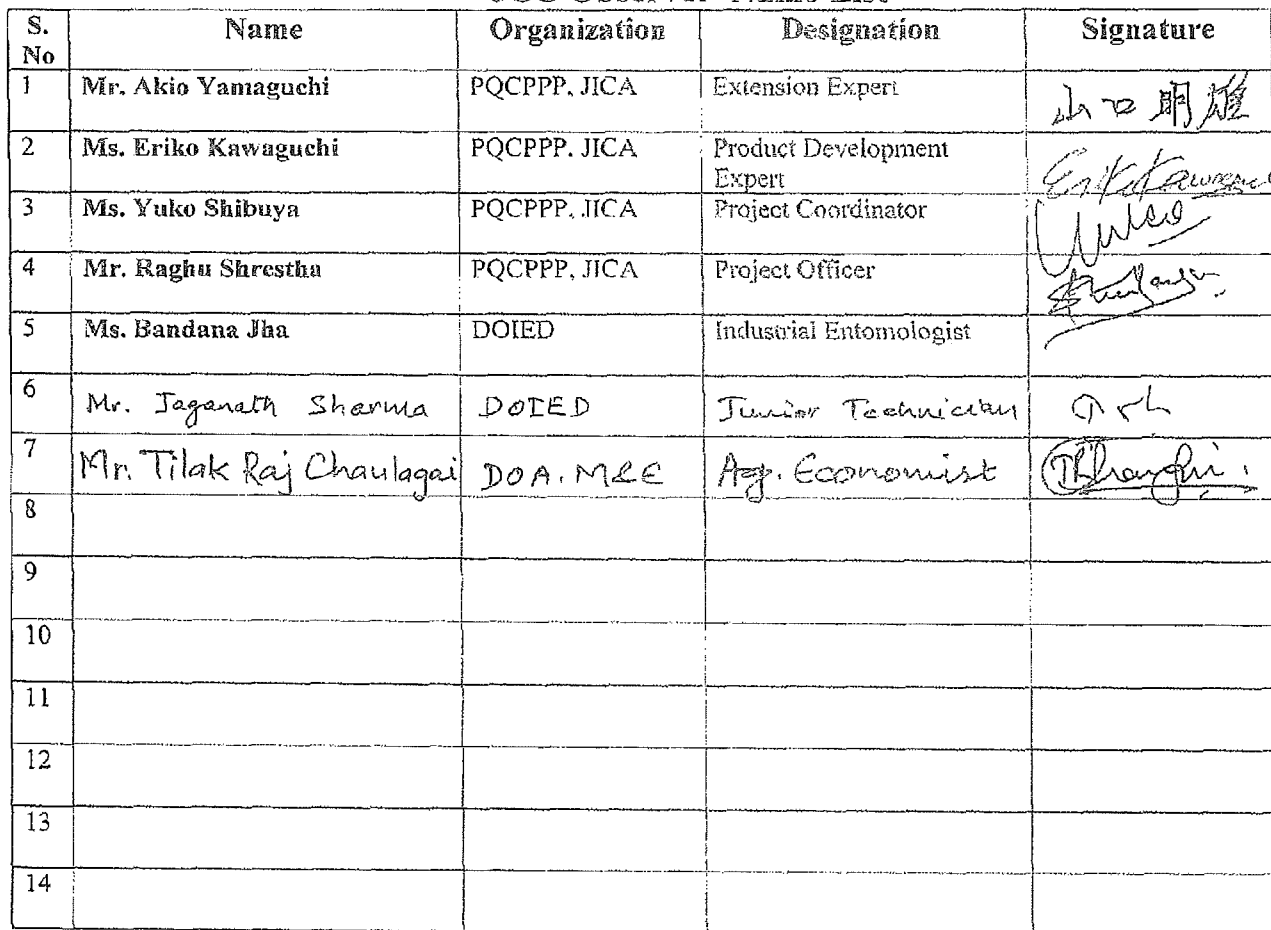 S. No Name Organization Designation Signature
1 Mr. Akio Yamaguchi PQCPPP, JICA Extension Expert 山口明雄
2 Ms. Eriko Kawaguchi PQCPPP. JICA Product Development Expert
3 Ms. Yuko Shibuya PQCPPP, JICA Project Coordinator
4 Mr. Raghu Shrestha PQCPPP, JICA Project Officer
5 Ms. Bandana Jha DOIED Industrial Entomologist
6 Mr. Jaganath Sharma DOIED Junior Technician
7 Mr. Tilak Raj Chaulagai DOA. M&E Economist
8
9
10
11
12
13
14